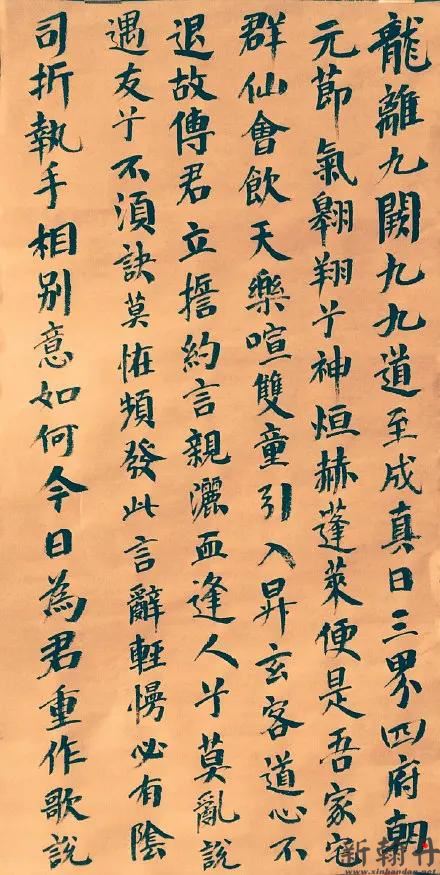 龍離九闕九九道至成真日三界四府朝
元節氣翱翔兮神烜赫蓬萊便是吾家宅
群仙會飲天樂喧雙童引入昇玄客道心不
退故傳君立誓約言親灑血逢人兮莫亂說
遇友兮不須訣莫恠頻發此言辭輕慢必有陰
司折執手相別意如何今日為君重作歌說
新翰丹
www.xinhandan.net